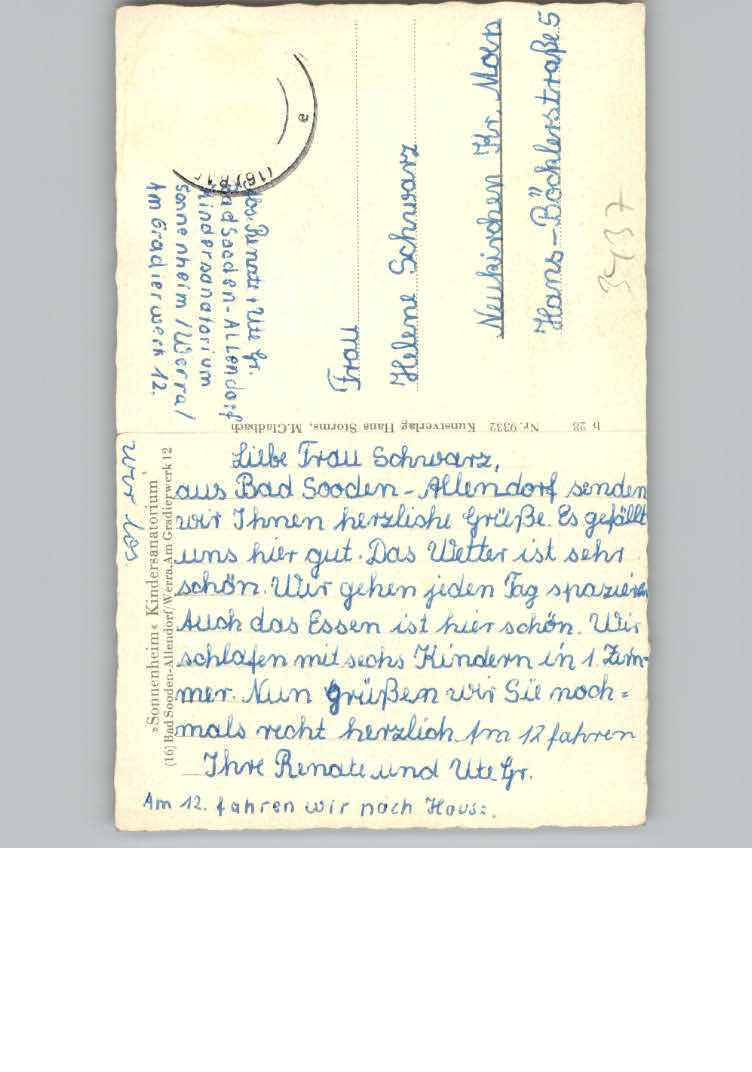 Liebe Frau Schwarz,
aus Bad Sooden-Allendorf senden
wir Ihnen herzliche Grüße. Es gefällt
uns hier gut. Das Wetter ist sehr
schön. Wir gehen jeden Tag spazieren
Auch das Essen ist hier schön. Wir
schlafen mit sechs Kindern in 1 Zim-
mer. Nun grüßen wir Sie noch=
mals recht herzlich. Am 12 fahren
Ihre Renate und Ute Gr.
Am 12. fahren wir nach Haus:.
wir los
»Sonnenheim« Kindersanatorium
(16) Bad Sooden-Allendorf/Werra, Am Gradierwerk 12
b 28 Nr. 9332 Kunstverlag Hans Storms, M.Gladbach
Abs. Renate + Ute Gr.
Bad Sooden-Allendorf
Kindersanatorium
Sonnenheim /Werra/
Am Gradierwerk 12.
Frau
Helene Schwarz
Neukirchen Kr. Moers
Hans-Böcklerstraße 5
3437
(16)
a